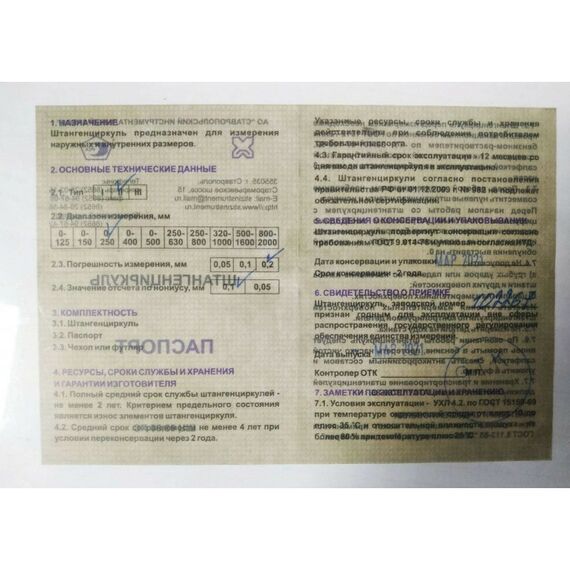 1. НАЗНАЧЕНИЕ
Штангенциркуль предназначен для измерения
наружных и внутренних размеров.
2. ОСНОВНЫЕ ТЕХНИЧЕСКИЕ ДАННЫЕ
2.1. Тип I II III
2.2. Диапазон измерения, мм
0-125 0-150 0-250 0-400 0-500 250-630 250-800 320-1000 500-1600 800-2000
2.3. Погрешность измерения, мм 0,05 0,1 0,2
2.4. Значение отсчета по нониусу, мм 0,1 0,05
3. КОМПЛЕКТНОСТЬ
3.1. Штангенциркуль
3.2. Паспорт
3.3. Чехол или футляр
4. РЕСУРСЫ, СРОКИ СЛУЖБЫ И ХРАНЕНИЯ
И ГАРАНТИИ ИЗГОТОВИТЕЛЯ
4.1. Полный средний срок службы штангенциркулей -
не менее 2 лет. Критерием предельного состояния
является износ элементов штангенциркуля.
4.2. Средний срок не менее 4 лет при
условии переконсервации через 2 года.
Указанные ресурсы, сроки службы и хранения
действительны при соблюдении потребителем
требований паспорта.
4.3. Гарантийный срок эксплуатации - 12 месяцев со
дня ввода штангенциркуля в эксплуатацию.
4.4. Штангенциркули согласно постановления
правительства РФ от 01.12.2009 г. № 982 не подлежат
5. СВЕДЕНИЯ О КОНСЕРВАЦИИ И УПАКОВЫВАНИИ
Штангенциркуль подвергнут консервации согласно
требованиям ГОСТ 9.014-78 и упакован согласно НТД.
Дата консервации и упаковки МАР 2021
Срок консервации - 2 года
6. СВИДЕТЕЛЬСТВО О ПРИЕМКЕ
Штангенциркуль, заводской номер
признан годным для эксплуатации вне сферы
распространения государственного регулирования
обеспечения единства измерений.
Дата выпуска МАР 2021
Контролер ОТК М.П.
7. ЗАМЕТКИ ПО ЭКСПЛУАТАЦИИ И ХРАНЕНИЮ
7.1. Условия эксплуатации - УХЛ 4.2. по ГОСТ 15150-69
при температуре от плюс 10 до
плюс 35 °С и относительной влажности воздуха не
более 80 % при температуре плюс 25 °С